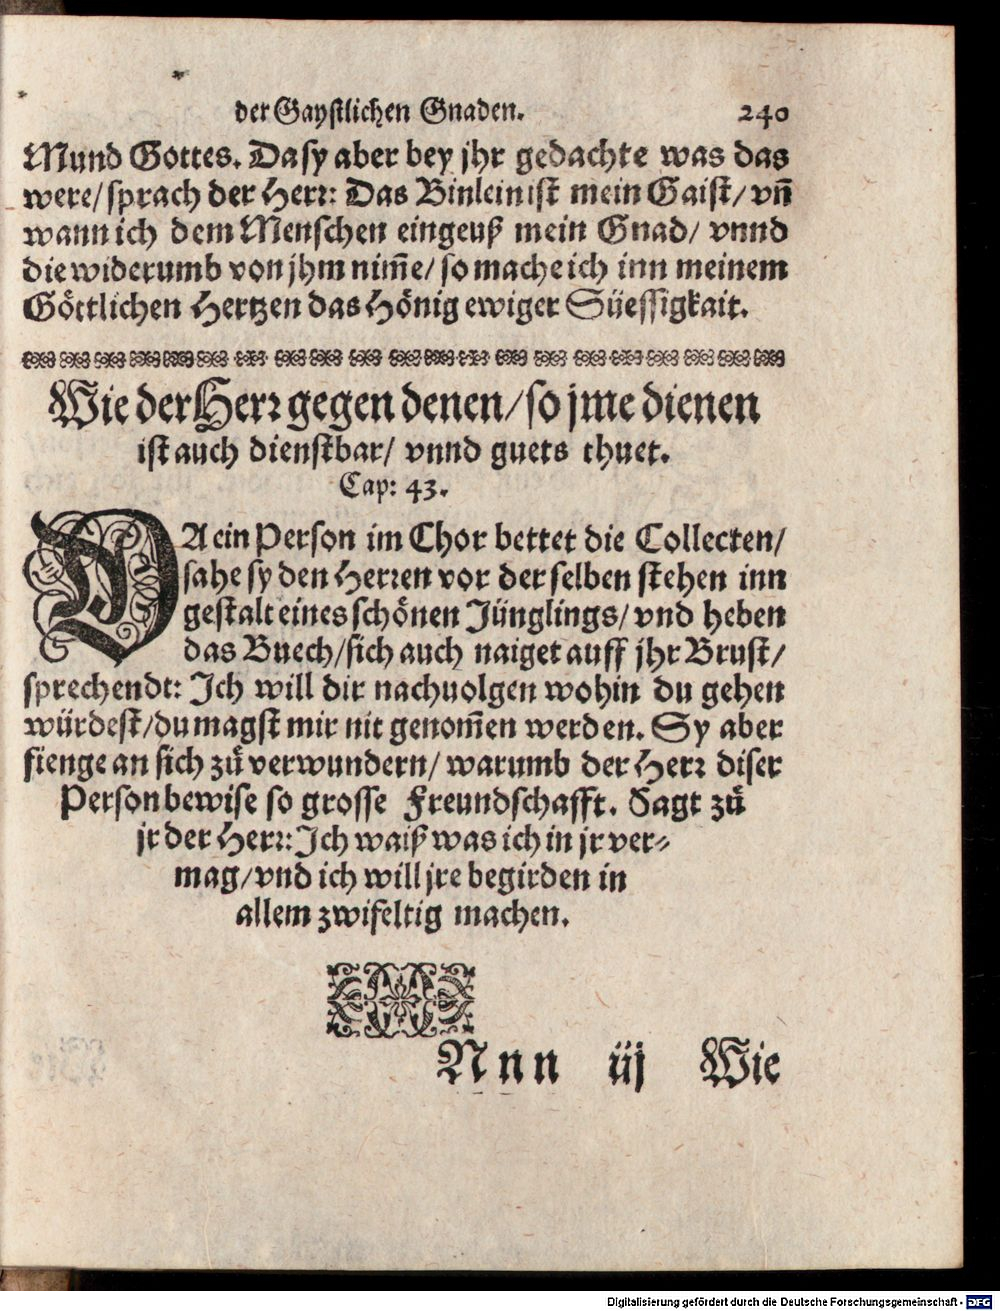 der Gaystlichen Gnaden. 240
Mund Gottes. Da sy aber bey jhr gedachte was das
were/ sprach der Herr: Das Binlein ist mein Gaist/ vn̄
wann ich dem Menschen eingeuß mein Gnad/ vnnd
die widerumb von jhm nim̄e/ so mache ich inn meinem
Göttlichen Hertzen das Hönig ewiger Süessigkait.
Wie der Herr gegen denen/ so jme dienen
ist auch dienstbar/ vnnd guets thuet.
Cap: 43.
DA ein Person im Chor bettet die Collecten/
sahe sy den Herren vor derselben stehen inn
gestalt eines schönen Jünglings/ vnd heben
das Buech/ sich auch naiget auff jhr Brust/
sprechendt: Ich will dir nachuolgen wohin du gehen
würdest/ du magst mir nit genom̄en werden. Sy aber
fienge an sich zů verwundern/ warumb der Herr diser
Person bewise so grosse Freundschafft. Sagt zů
jr der Herr: Ich waiß was ich in jr ver-
mag/ vnd ich will jre begirden in
allem zwifeltig machen.
Nnn iij Wie
Digitalisierung gefördert durch die Deutsche Forschungsgemeinschaft - DFG